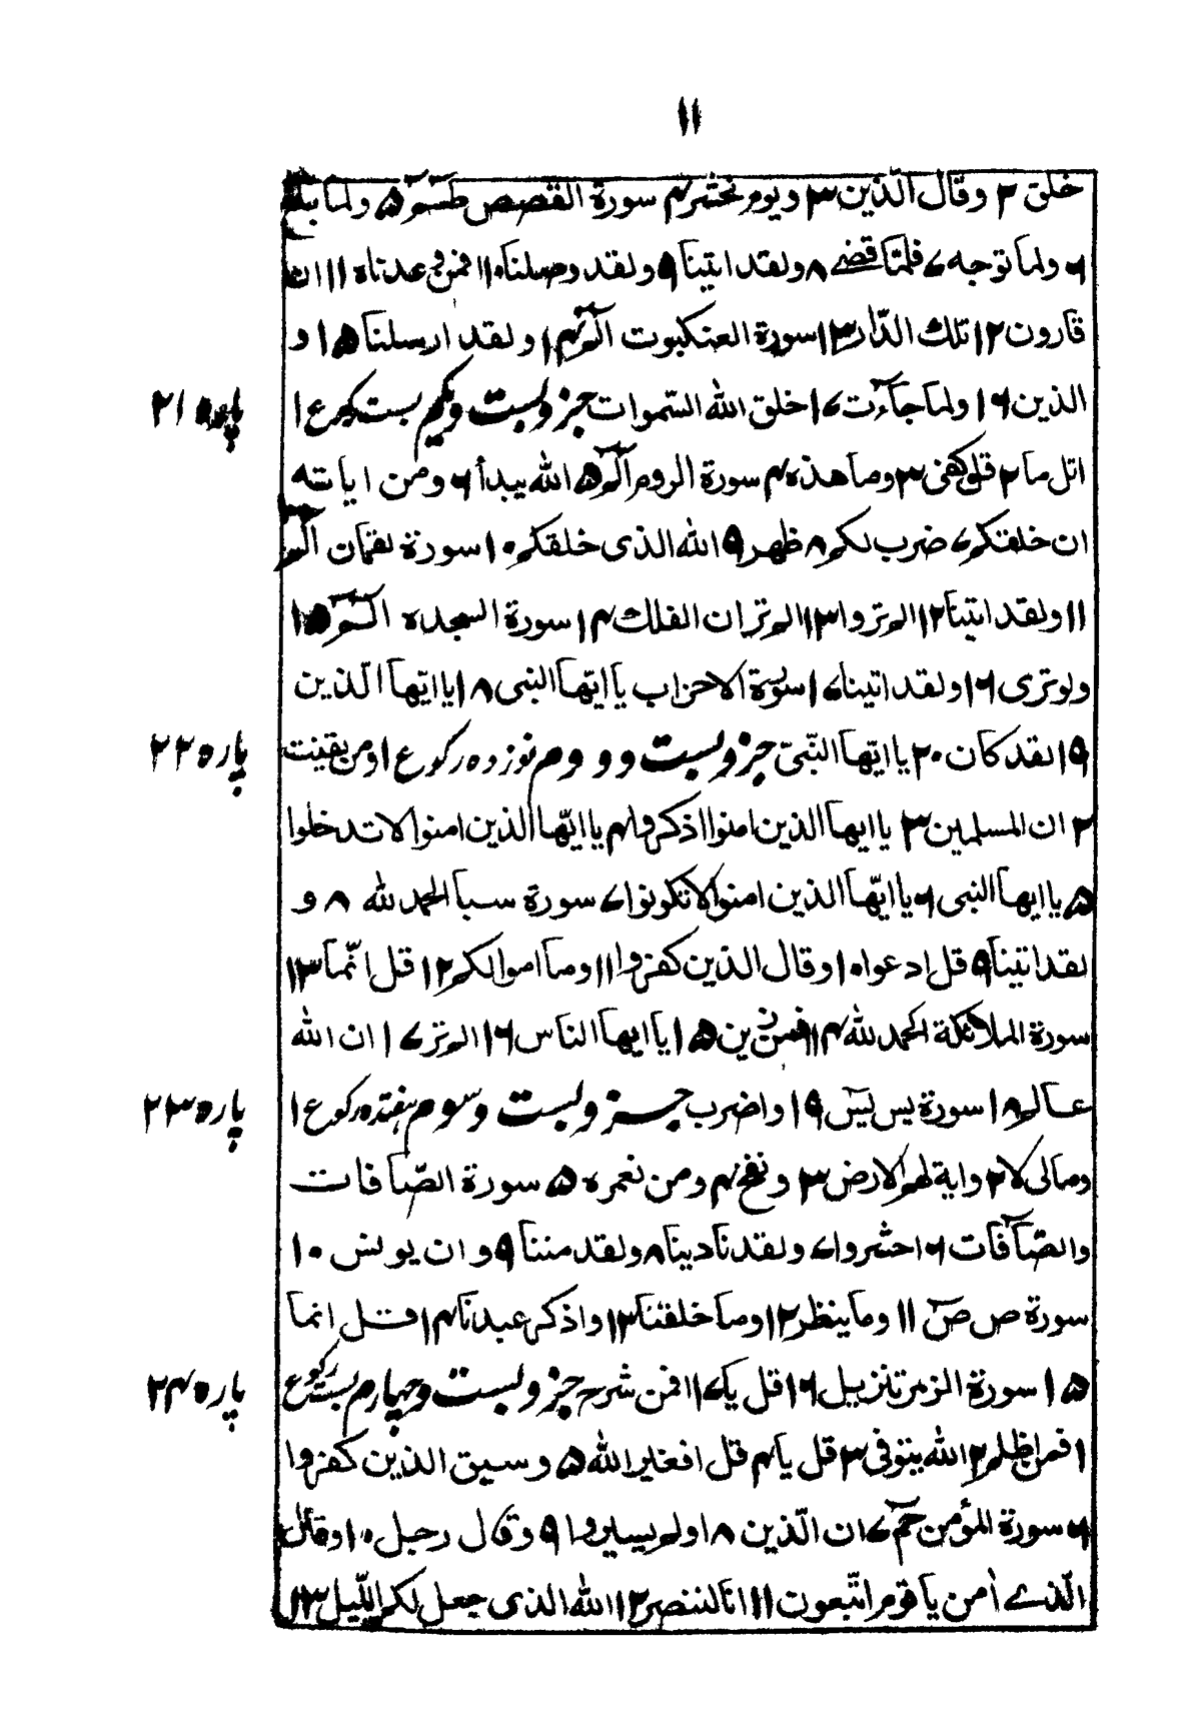 ۱۱
خلق ۲ وقال الّذين ۳ ويوم نحشر ۴ سورة القصص طٰسٓمٓ ۵ ولما بلغ
۶ ولما توجه ۷ فلمّا قضے ۸ ولقد اتينا ۹ ولقد وصلنا ۱۰ افمن وعدناه ۱۱ ان
قارون ۱۲ تلك الدّار ۱۳ سورة العنكبوت الٓمّٓ ۱۴ ولقد ارسلنا ۱۵ و
الذين ۱۶ ولما جآءت ۱۷ خلق الله السّموات جز وبست ويكم بست ركوع ۱
پاره ۲۱
اتل ما ۲ قل كفى ۳ وما هذه ۴ سورة الروم الٓمّٓ ۵ الله يبدأ ۶ ومن اياته
ان خلقتكم ۷ ضرب لكم ۸ ظهر ۹ الله الذى خلقكم ۱۰ سورة لقمان الٓمّٓ
۱۱ ولقد اتينا ۱۲ الم تروا ۱۳ الم تر ان الفلك ۱۴ سورة السجده الٓمّٓ ۱۵
ولو ترى ۱۶ ولقد اتينا ۱۷ سورة الاحزاب يا ايّها النبى ۱۸ يا ايّها الّذين
۱۹ لقد كان ۲۰ يا ايّها النّبىّ جز وبست و دوم نوزده ركوع ۱ ومن يقينت
پاره ۲۲
۲ ان المسلمين ۳ يا ايها الذين امنوا اذكروا ۴ يا ايّها الذين امنوا لا تدخلوا
۵ يا ايها النبى ۶ يا ايّها الذين امنوا لا تكونوا ۷ سورة سبا الحمد لله ۸ و
لقد اتينا ۹ قل ادعوا ۱۰ وقال الذين كفروا ۱۱ وما اموالكم ۱۲ قل انّما ۱۳
سورة الملائكة الحمد لله ۱۴ افمن زين ۱۵ يا ايها الناس ۱۶ الم تر ۱۷ ان الله
عالم ۱۸ سورة يس يٓسٓ ۱۹ واضرب جز وبست وسوم هفتده ركوع ۱
پاره ۲۳
ومالى لا ۲ واية لهم الارض ۳ ونفخ ۴ ومن نعمره ۵ سورة الصّافات
والصّآفات ۶ احشروا ۷ ولقد نادينا ۸ ولقد مننا ۹ وان يونس ۱۰
سورة ص صٓ ۱۱ وما ينظر ۱۲ وما خلقنا ۱۳ واذكر عبدنا ۱۴ قل انما
۱۵ سورة الزمر تنزيل ۱۶ قل يا ۱۷ افمن شرح جز وبست وچهارم بست ركوع
پاره ۲۴
۱ فمن اظلم ۲ الله يتوفى ۳ قل يا ۴ قل افغير الله ۵ وسيق الذين كفروا
۶ سورة المؤمن حٰمٓ ۷ ان الّذين ۸ اولم يسيروا ۹ وقال رجل ۱۰ وقال
الّذے اٰمن يا قوم اتّبعون ۱۱ انا لننصر ۱۲ الله الذى جعل لكم اللّيل ۱۳